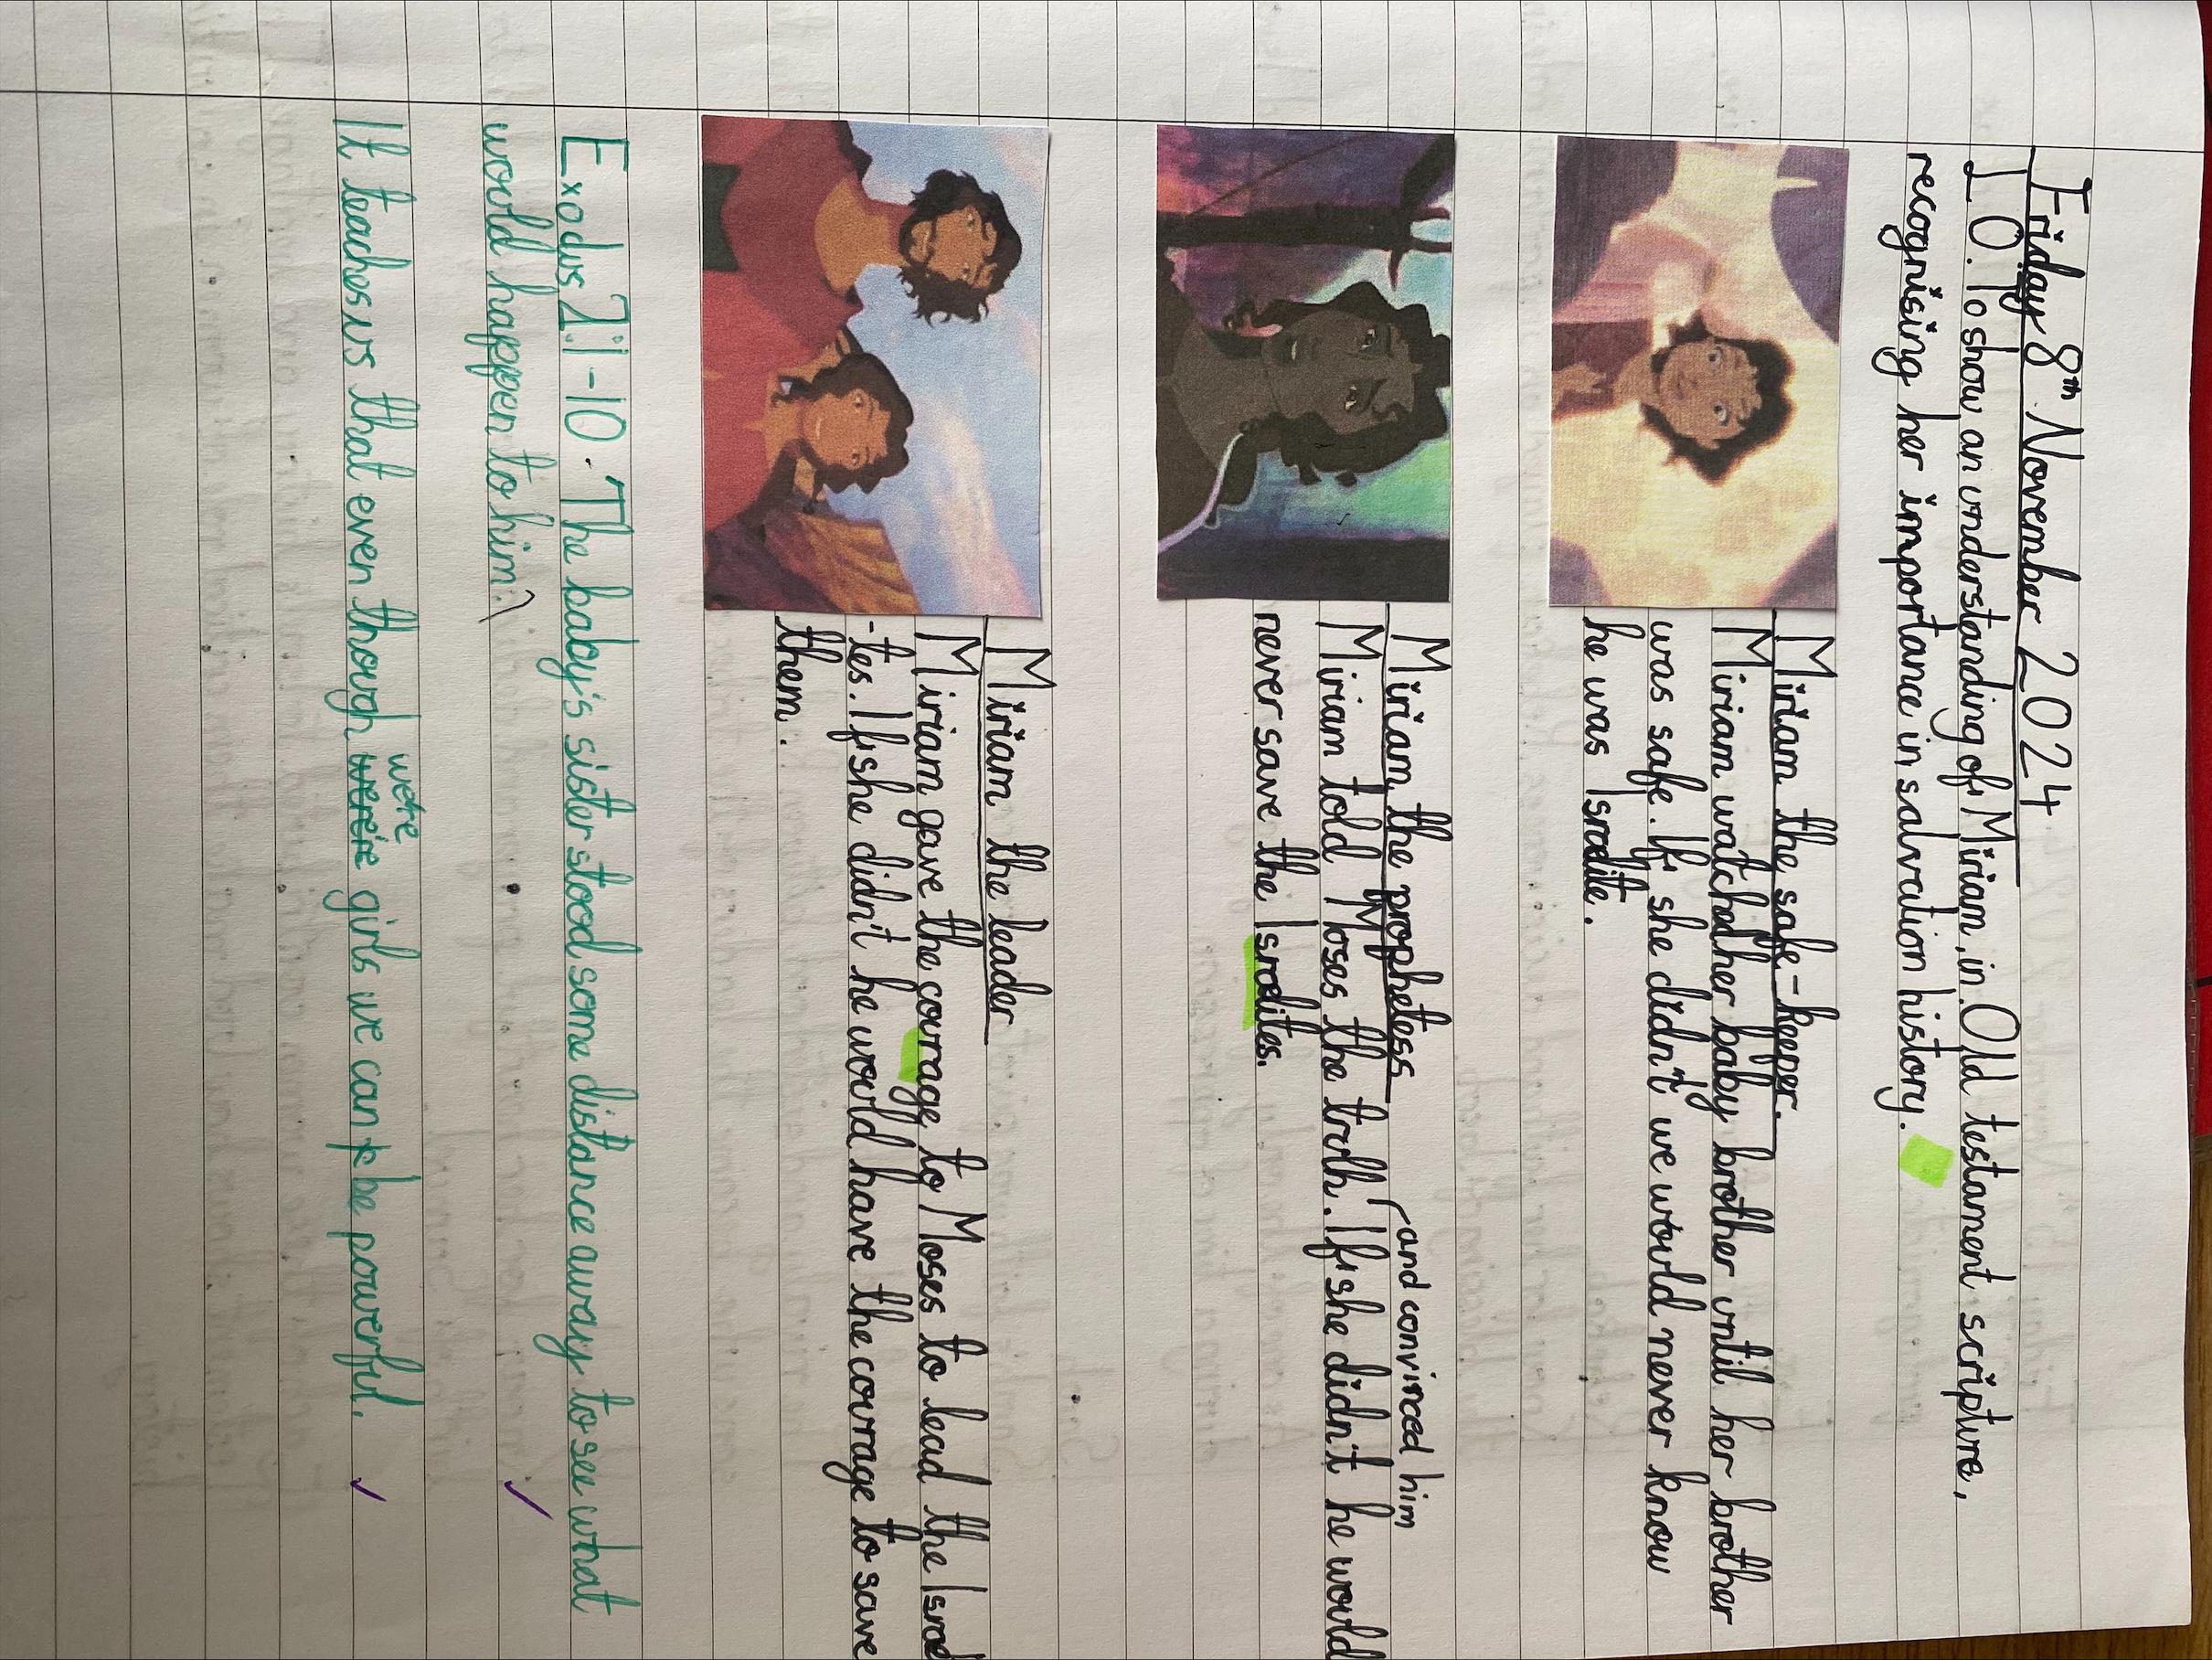 Friday 8th November 2024
LO. To show an understanding of Miriam in Old testament scripture,
recognising her importance in salvation history.
Miriam the safe-keeper.
Miriam watched her baby brother until her brother
was safe. If she didn't we would never know
he was Israelite.
Miriam the prophetess
and convinced him
Miriam told Moses the truth. If she didn't he would
never save the Israelites.
Miriam the leader
Miriam gave the courage to Moses to lead the Israel
-tes. If she didn't he would have the courage to save
them.
Exodus 2:1-10. The baby's sister stood some distance away to see what
would happen to him.
were
It teaches us that even though girls we can be powerful.